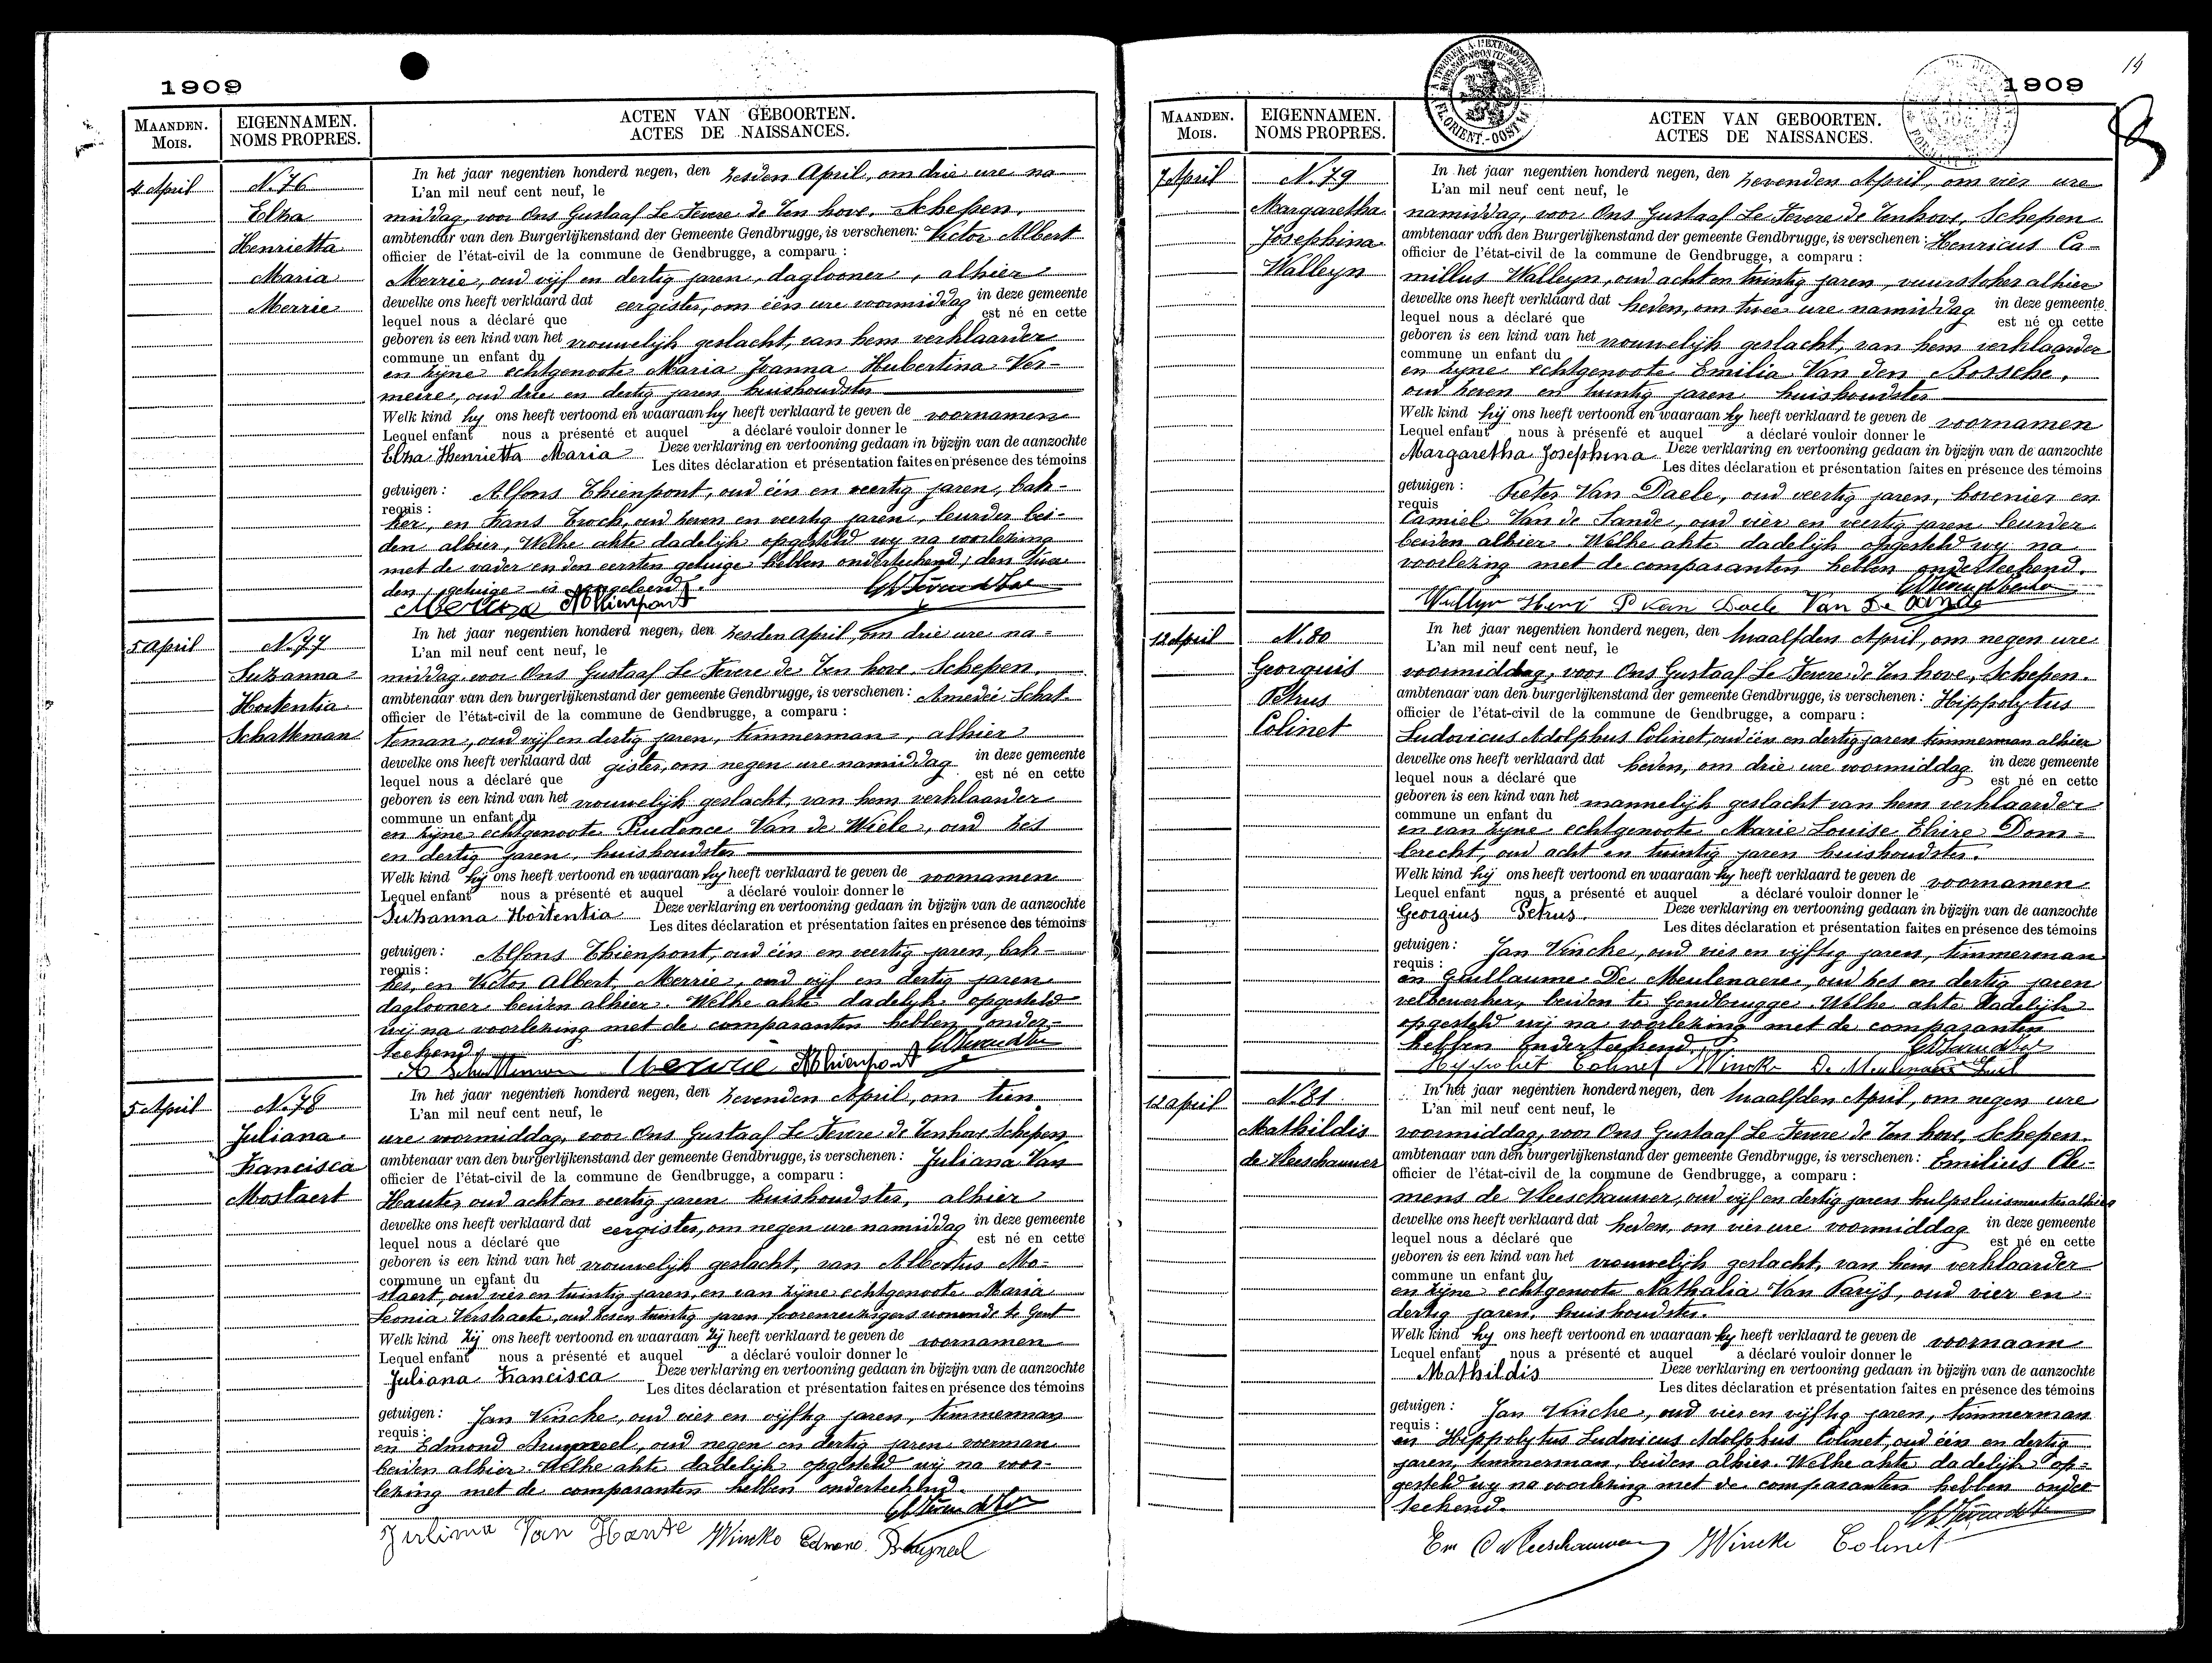 1909
MAANDEN.
Mois.
EIGENNAMEN.
NOMS PROPRES.
ACTEN VAN GEBOORTEN.
ACTES DE NAISSANCES.
4 April
N. 76
Elza
Henrietta
Maria
Merrie
In het jaar negentien honderd negen, den zesden April, om drie ure na-
L'an mil neuf cent neuf, le
middag, voor Ons Gustaaf Le Fevere de Ten hove, Schepen,
ambtenaar van den Burgerlijkenstand der Gemeente Gendbrugge, is verschenen: Victor Albert
officier de l'état-civil de la commune de Gendbrugge, a comparu :
Merrie, oud vijf en dertig jaren, daglooner, alhier
dewelke ons heeft verklaard dat eergister, om één ure voormiddag in deze gemeente
lequel nous a déclaré que est né en cette
geboren is een kind van het vrouwelijk geslacht, van hem verklaarder
commune un enfant du
en zijne echtgenoote Maria Joanna Hubertina Ver-
meire, oud drie en dertig jaren huishoudster
Welk kind hy ons heeft vertoond en waaraan hy heeft verklaard te geven de voornamen
Lequel enfant nous a présenté et auquel a déclaré vouloir donner le
Elza Henrietta Maria Deze verklaring en vertooning gedaan in bijzijn van de aanzochte
Les dites déclaration et présentation faites en présence des témoins
getuigen : Alfons Thienpont, oud één en veertig jaren, bak-
requis :
ker, en Frans Troch, oud zeven en veertig jaren, leurder bei-
den alhier, Welke akte dadelijk opgesteld wy na voorlezing
met de vader en den eersten getuige hebben onderteekend; den twee
den getuige is ongeleerd.
Merrie AThienpont
5 April
N. 77
Suzanna
Hortentia
Schatteman
In het jaar negentien honderd negen, den zesden April, om drie ure na-
L'an mil neuf cent neuf, le
middag voor Ons Gustaaf Le Fevere de Ten hove, Schepen,
ambtenaar van den burgerlijkenstand der gemeente Gendbrugge, is verschenen: Amedée Schat-
officier de l'état-civil de la commune de Gendbrugge, a comparu :
teman, oud vijf en dertig jaren, timmerman, alhier
dewelke ons heeft verklaard dat gister, om negen ure namiddag in deze gemeente
lequel nous a déclaré que est né en cette
geboren is een kind van het vrouwelijk geslacht, van hem verklaarder
commune un enfant du
en zijne echtgenoote Prudence Van de Wiele, oud zes
en dertig jaren, huishoudster
Welk kind hij ons heeft vertoond en waaraan hy heeft verklaard te geven de voornamen
Lequel enfant nous a présenté et auquel a déclaré vouloir donner le
Suzanna Hortentia Deze verklaring en vertooning gedaan in bijzijn van de aanzochte
Les dites déclaration et présentation faites en présence des témoins
getuigen: Alfons Thienpont, oud één en veertig jaren, bak-
requis :
ker, en Victor Albert, Merrie, oud vijf en dertig jaren
daglooner beiden alhier. Welke akte dadelijk opgesteld
wij na voorlezing met de comparanten hebben onder-
teekend.
A Schatteman Merrie AThienpont
5 April
N. 78
Juliana
Francisca
Mostaert
In het jaar negentien honderd negen, den zevenden April, om tien
L'an mil neuf cent neuf, le
ure voormiddag, voor Ons Gustaaf Le Fevere de Tenhove Schepen
ambtenaar van den burgerlijkenstand der gemeente Gendbrugge, is verschenen: Juliana Van
officier de l'état-civil de la commune de Gendbrugge, a comparu :
Haute, oud acht en veertig jaren huishoudster, alhier
dewelke ons heeft verklaard dat eergister, om negen ure namiddag in deze gemeente
lequel nous a déclaré que est né en cette
geboren is een kind van het vrouwelijk geslacht, van Albertus Mo-
commune un enfant du
staert, oud vier en twintig jaren, en van zijne echtgenoote Maria
Leonia Verstraete, oud zes en twintig jaren foorenreizigers wonende te Gent
Welk kind zij ons heeft vertoond en waaraan zij heeft verklaard te geven de voornamen
Lequel enfant nous a présenté et auquel a déclaré vouloir donner le
Juliana Francisca Deze verklaring en vertooning gedaan in bijzijn van de aanzochte
Les dites déclaration et présentation faites en présence des témoins
getuigen: Jan Vincke, oud vier en vijftig jaren, timmerman
requis :
en Edmond Bruyneel, oud negen en dertig jaren voerman
beiden alhier. Welke akte dadelijk opgesteld wij na voor-
lezing met de comparanten hebben onderteekend.
Julima Van Hante JVincke Edmond Bruyneel
19
1909
MAANDEN.
Mois.
EIGENNAMEN.
NOMS PROPRES.
ACTEN VAN GEBOORTEN.
ACTES DE NAISSANCES.
7 April
N. 79
Margaretha
Josephina
Walleyn
In het jaar negentien honderd negen, den zevenden April, om vier ure
L'an mil neuf cent neuf, le
namiddag, voor Ons Gustaaf Le Fevere de Tenhove, Schepen
ambtenaar van den Burgerlijkenstand der gemeente Gendbrugge, is verschenen: Henricus Ca-
officier de l'état-civil de la commune de Gendbrugge, a comparu :
millus Walleyn, oud acht en twintig jaren, vuurstoker alhier
dewelke ons heeft verklaard dat heden, om twee ure namiddag in deze gemeente
lequel nous a déclaré que est né en cette
geboren is een kind van het vrouwelijk geslacht, van hem verklaarder
commune un enfant du
en zijne echtgenoote Emilia Van den Bossche,
oud zeven en twintig jaren huishoudster
Welk kind hij ons heeft vertoond en waaraan hy heeft verklaard te geven de voornamen
Lequel enfant nous à présenté et auquel a déclaré vouloir donner le
Margaretha Josephina Deze verklaring en vertooning gedaan in bijzijn van de aanzochte
Les dites déclaration et présentation faites en présence des témoins
getuigen : Pieter Van Daele, oud veertig jaren, hovenier en
requis
Camiel Van de Sande, oud vier en veertig jaren leurder
beiden alhier. Welke akte dadelijk opgesteld wy na
voorlezing met de comparanten hebben onderteekend.
Wallyn Henri P Van Daele Van De Sande
12 April
N. 80
Georgius
Petrus
Colinet
In het jaar negentien honderd negen, den twaalfden April, om negen ure
L'an mil neuf cent neuf, le
voormiddag, voor Ons Gustaaf Le Fevere de Ten hove, Schepen.
ambtenaar van den burgerlijkenstand der gemeente Gendbrugge, is verschenen: Hippolytus
officier de l'état-civil de la commune de Gendbrugge, a comparu :
Ludovicus Adolphus Colinet, oud één en dertig jaren timmerman alhier
dewelke ons heeft verklaard dat heden, om drie ure voormiddag in deze gemeente
lequel nous a déclaré que est né en cette
geboren is een kind van het mannelijk geslacht van hem verklaarder
commune un enfant du
en van zijne echtgenoote Marie Louise Elvire Dom-
brecht, oud acht en twintig jaren huishoudster.
Welk kind hij ons heeft vertoond en waaraan hy heeft verklaard te geven de voornamen
Lequel enfant nous a présenté et auquel a déclaré vouloir donner le
Georgius Petrus. Deze verklaring en vertooning gedaan in bijzijn van de aanzochte
Les dites déclaration et présentation faites en présence des témoins
getuigen: Jan Vincke, oud vier en vijftig jaren, timmerman
requis :
en Guillaume De Meulenaere, oud zes en dertig jaren
velbewerker, beiden te Gendbrugge. Welke akte dadelijk
opgesteld wij na voorlezing met de comparanten
hebben onderteekend.
Hyppoliet Colinet JVincke De Meulenaere
12 april
N. 81
Mathildis
de Vleeschauwer
In het jaar negentien honderd negen, den twaalfden April, om negen ure
L'an mil neuf cent neuf, le
voormiddag, voor Ons Gustaaf Le Fevere de Ten hove, Schepen.
ambtenaar van den burgerlijkenstand der gemeente Gendbrugge, is verschenen: Emilius Cle-
officier de l'état-civil de la commune de Gendbrugge, a comparu :
mens de Vleeschauwer, oud vijf en dertig jaren hulpsluismeester alhier
dewelke ons heeft verklaard dat heden, om vier ure voormiddag in deze gemeente
lequel nous a déclaré que est né en cette
geboren is een kind van het vrouwelijk geslacht, van hem verklaarder
commune un enfant du
en zijne echtgenoote Nathalia Van Parijs, oud vier en
dertig jaren, huishoudster.
Welk kind hy ons heeft vertoond en waaraan hy heeft verklaard te geven de voornaam
Lequel enfant nous a présenté et auquel a déclaré vouloir donner le
Mathildis Deze verklaring en vertooning gedaan in bijzijn van de aanzochte
Les dites déclaration et présentation faites en présence des témoins
getuigen: Jan Vincke, oud vier en vijftig jaren, timmerman
requis :
en Hippolytus Ludovicus Adolphus Colinet, oud één en dertig
jaren, timmerman, beiden alhier. Welke akte dadelijk op-
gesteld wy na voorlezing met de comparanten hebben onder
teekend.
Em De Vleeschauwer JVincke Colinet